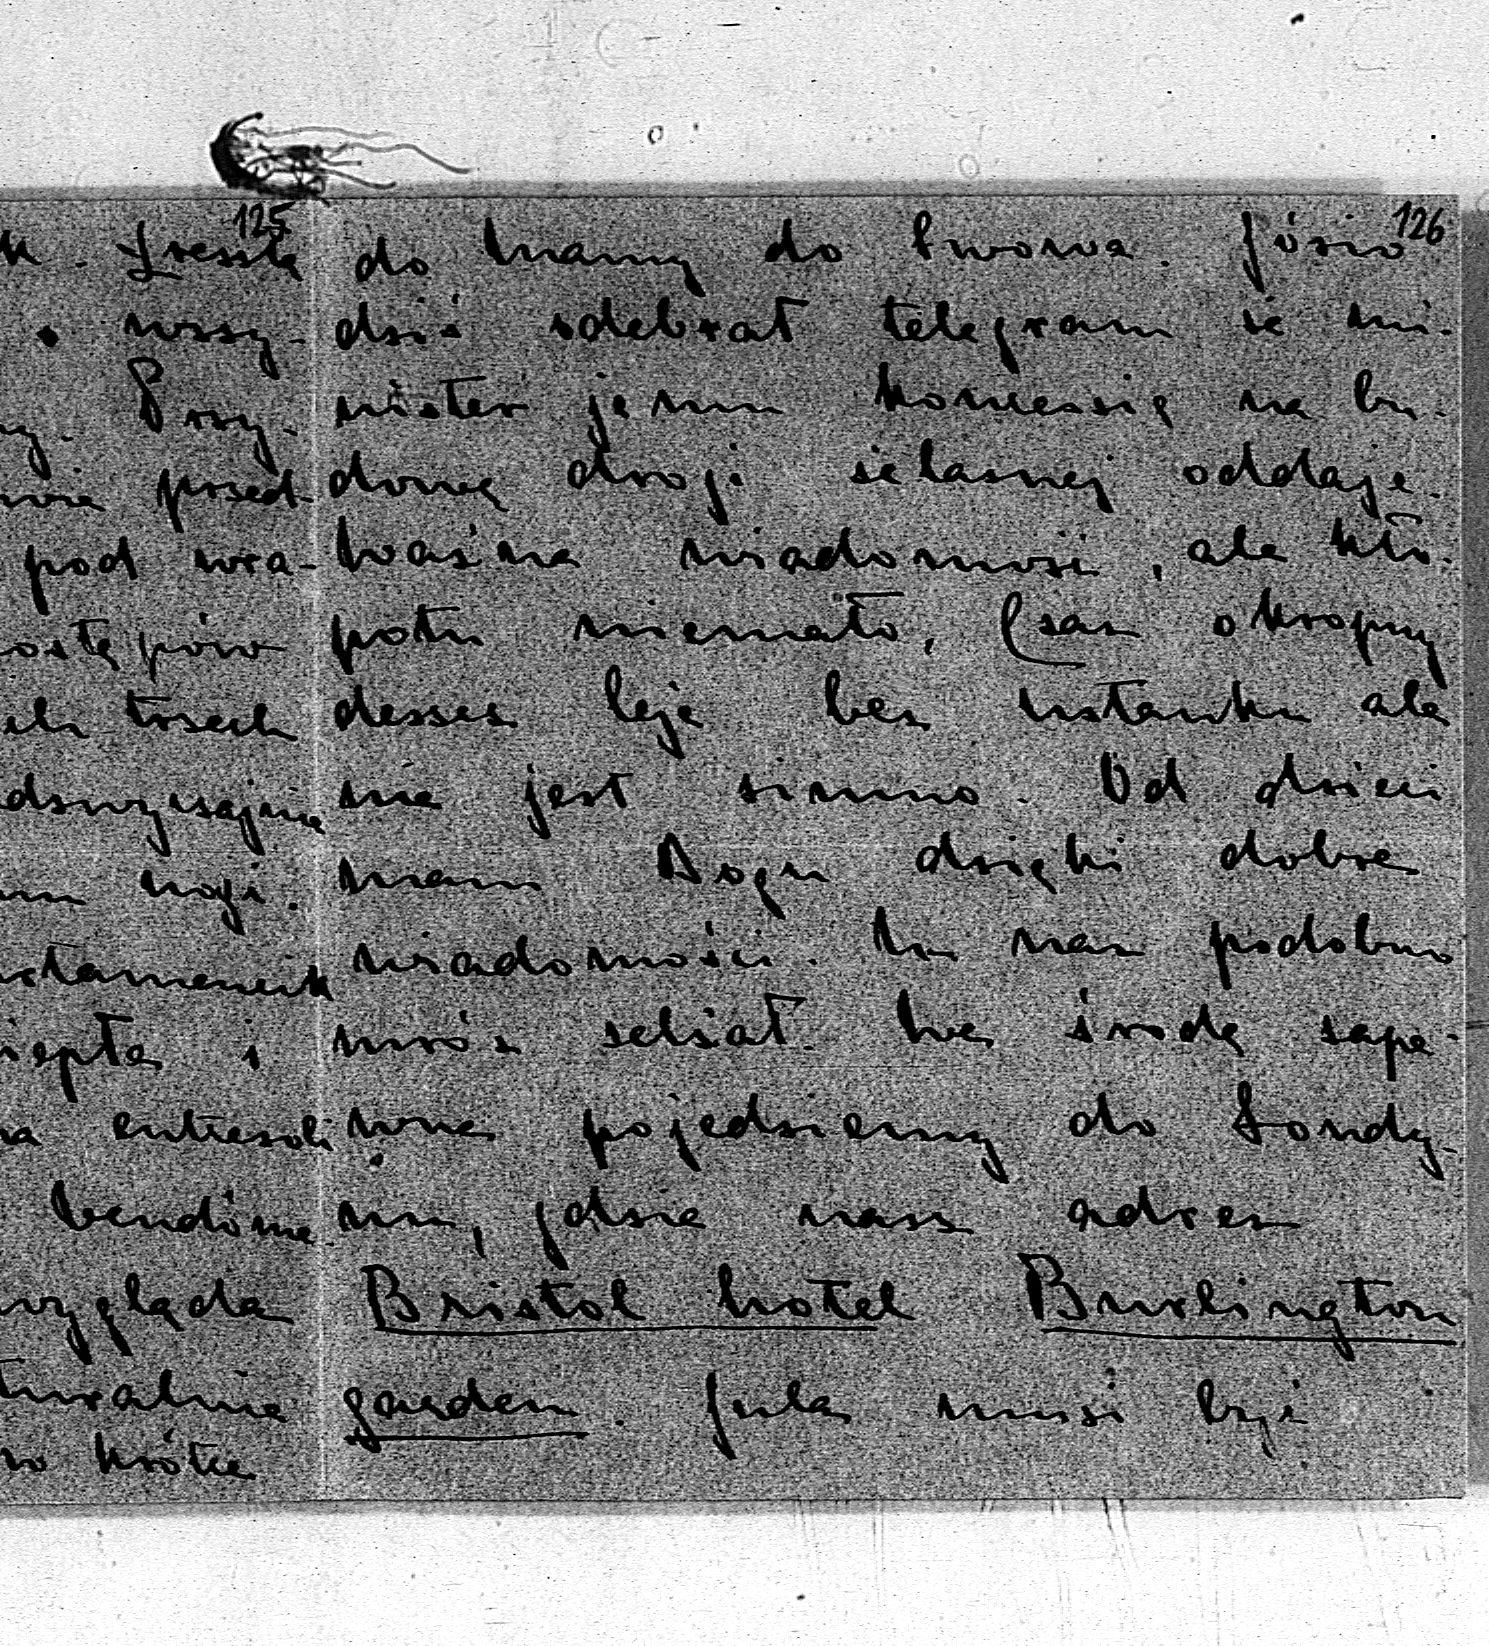 125
k. Zresztą
wszy-
Przy-
wie przed-
pod wra-
ostępów
ich trzech
dzwyczajnie
um nogi.
artamencik
iepła i
na entresoli
Vendôme.
wygląda
turalnie
ko krótkie
126
do Mamy do Lwowa. Józio
dziś odebrał telegram że mi-
nister jemu koncessię na bu-
dowę drogi żelaznej oddaje.
Ważna wiadomość, ale kło-
potu niemało. Czas okropny
deszcz leje bez ustanku ale
nie jest zimno. Od dzieci
mam Bogu dzięki dobre
wiadomości. Tu nas podobno
mróz zelżał. We środę zape-
wne pojedziemy do Londy-
nu, gdzie nasz adres
Bristol hotel Burlington
garden. Jula musi być